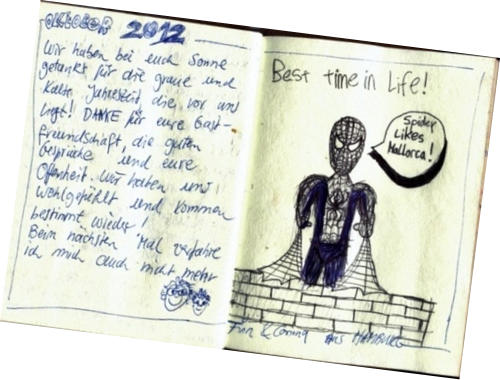 OKTOBER 2012
Wir haben bei euch Sonne
getankt für die graue und
kalte Jahreszeit, die vor uns
liegt! DANKE für eure Gast-
freundschaft, die guten
Gespräche und eure
Offenheit. Wir haben uns
wohlgefühlt und kommen
bestimmt wieder!
Beim nächsten Mal verfahre
ich mich auch nicht mehr
Best time in Life!
Spider
Likes
Mallorca!
Finn & aus HAMBURG